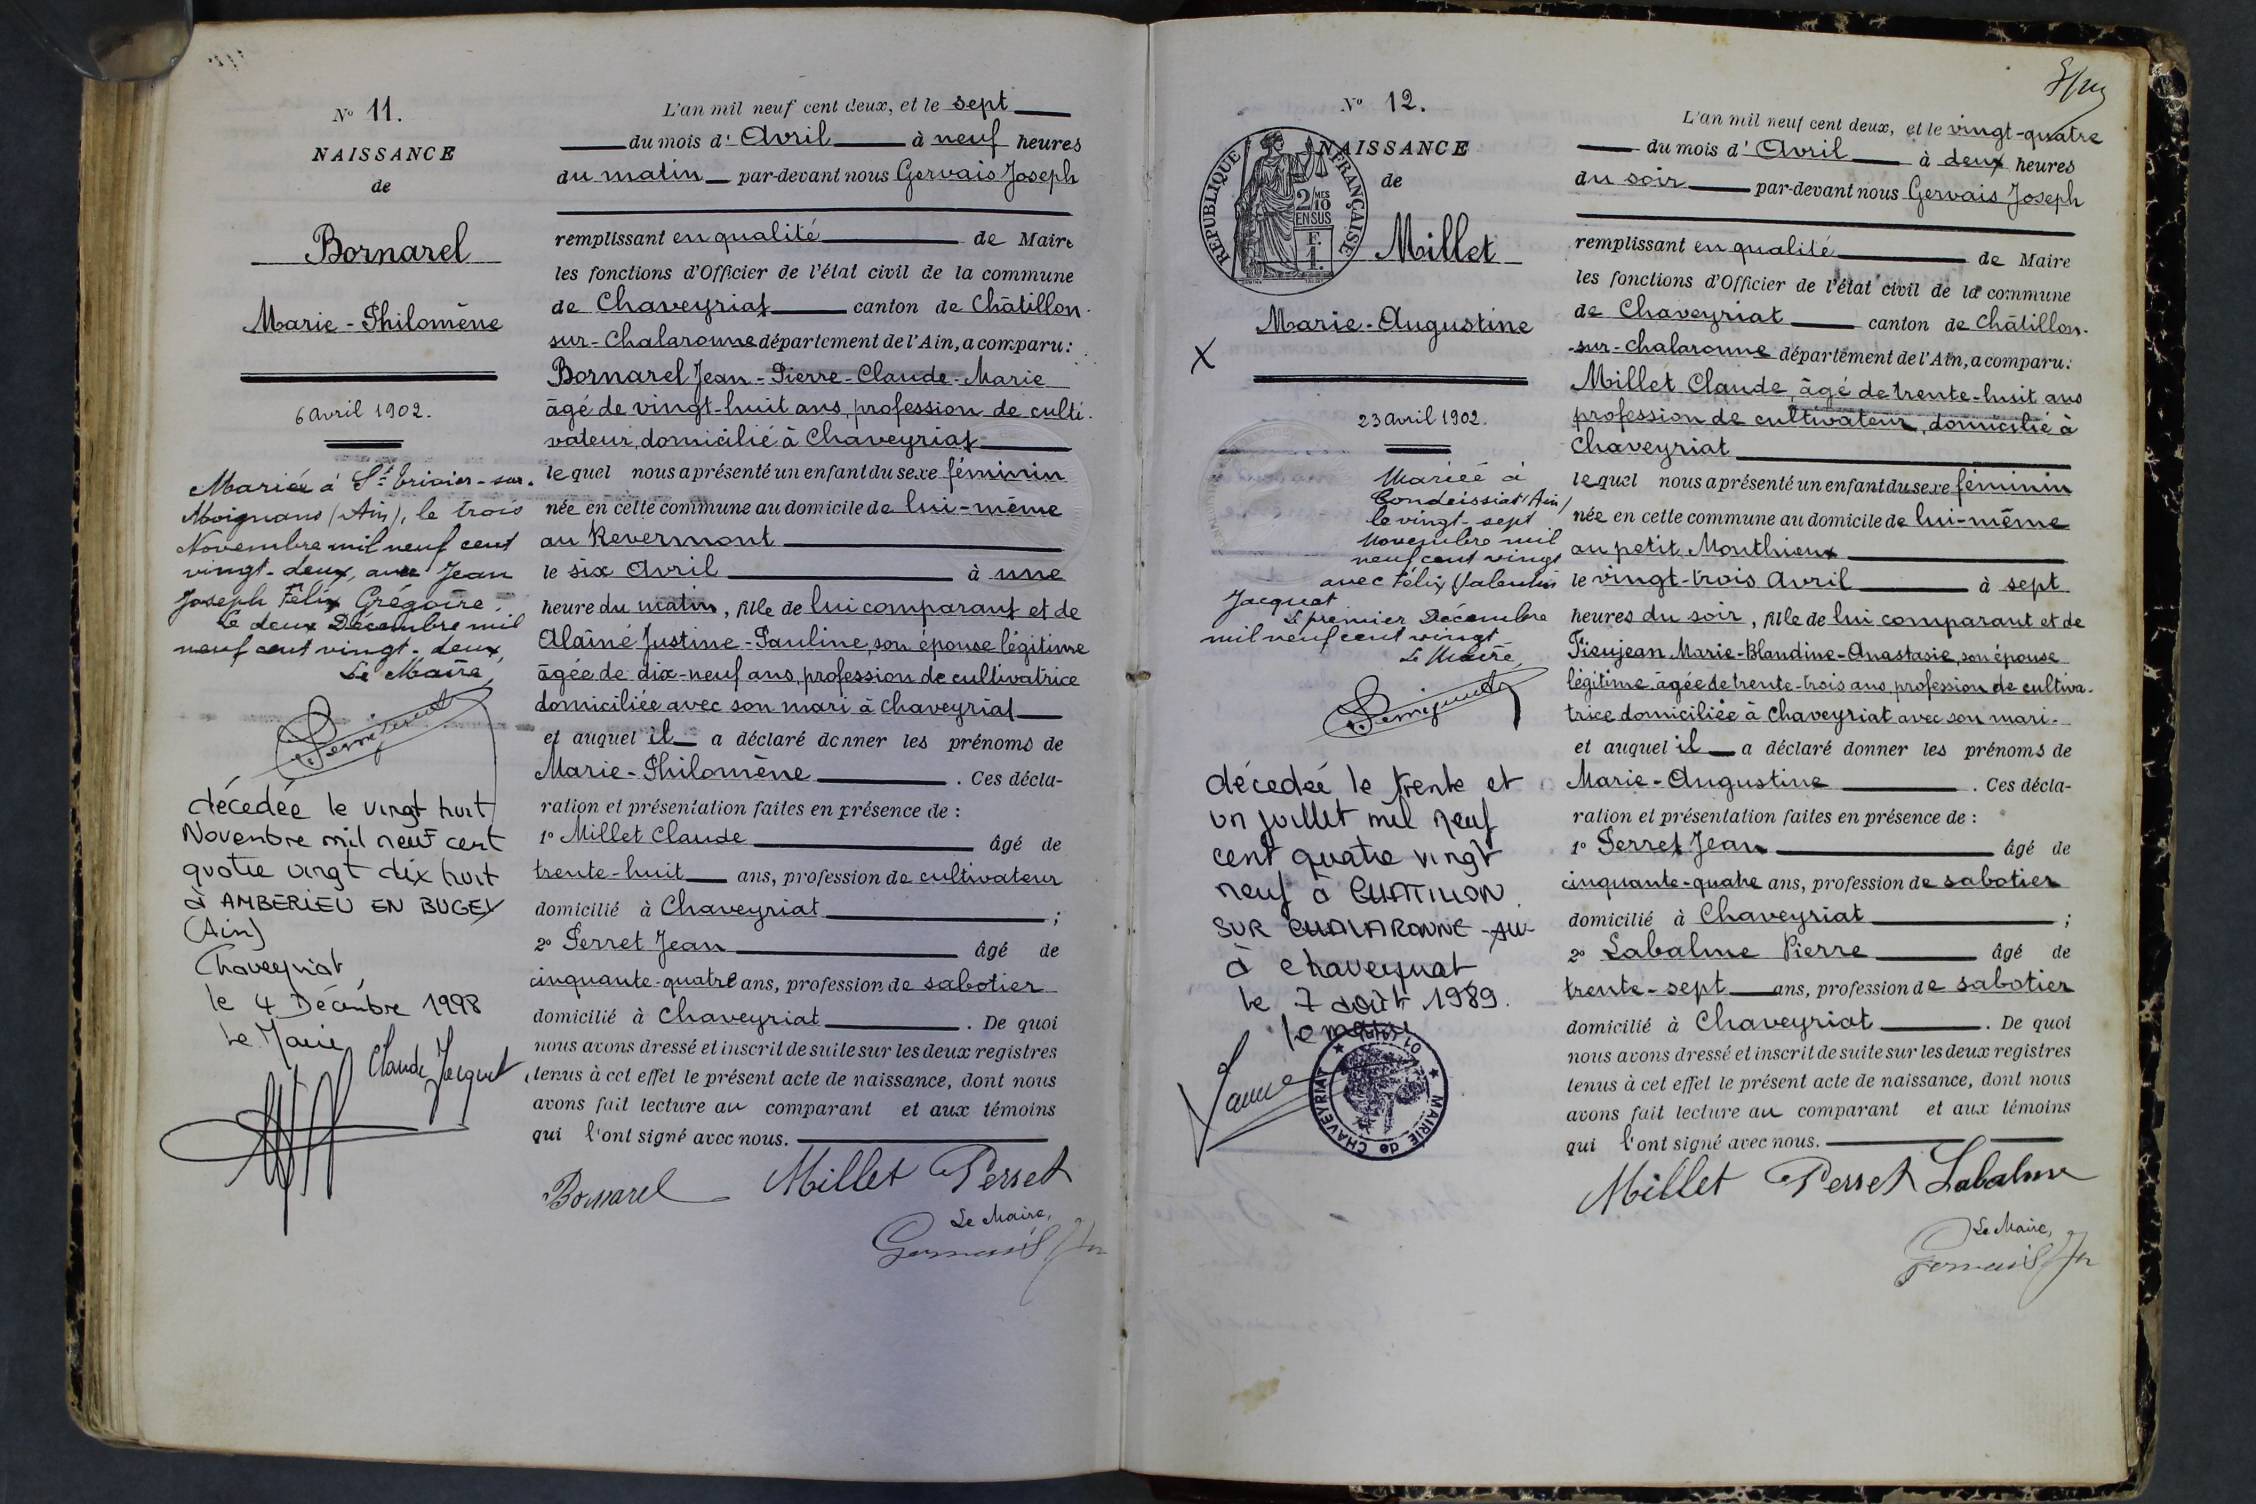 Nº 11.
NAISSANCE
de
Bornarel
Marie-Philomène
6 avril 1902.
Mariée à St Trivier-sur-
Moignans (Ain), le trois
Novembre mil neuf cent
vingt-deux, avec Jean
Joseph Félix Grégoire.
Le deux Décembre mil
neuf cent vingt-deux,
Le Maire,
décedée le vingt huit
Novembre mil neuf cent
quatre vingt dix huit
à AMBERIEU EN BUGEY
(Ain)
Chaveyriat,
le 4 Décembre 1998
Le Maire
Claude Jacquet
L'an mil neuf cent deux, et le sept
du mois d'Avril à neuf heures
du matin par-devant nous Gervais Joseph
remplissant en qualité de Maire
les fonctions d'Officier de l'état civil de la commune
de Chaveyriat canton de Châtillon-
sur-Chalaronne département de l'Ain, a comparu:
Bornarel Jean-Pierre-Claude-Marie
âgé de vingt-huit ans, profession de culti-
vateur, domicilié à Chaveyriat
lequel nous a présenté un enfant du sexe féminin
née en cette commune au domicile de lui-même
au Revermont
le six Avril à une
heure du matin, fille de lui comparant et de
Alaîné Justine-Pauline, son épouse légitime
âgée de dix-neuf ans, profession de cultivatrice
domiciliée avec son mari à Chaveyriat
et auquel il a déclaré donner les prénoms de
Marie-Philomène. Ces décla-
ration et présentation faites en présence de :
1º Millet Claude âgé de
trente-huit ans, profession de cultivateur
domicilié à Chaveyriat ;
2º Perret Jean âgé de
cinquante-quatre ans, profession de sabotier
domicilié à Chaveyriat. De quoi
nous avons dressé et inscrit de suite sur les deux registres
tenus à cet effet le présent acte de naissance, dont nous
avons fait lecture au comparant et aux témoins
qui l'ont signé avec nous.
Bornarel Millet Perret
Le Maire,
Gervais Jh
Nº 12.
RÉPUBLIQUE FRANÇAISE
2/10 MES
EN SUS
F.
1.
NAISSANCE
de
Millet
Marie-Augustine
X
23 avril 1902.
Mariée à
Condeissiat (Ain)
le vingt-sept
Novembre mil
neuf cent vingt
avec Félix Valentin
Jacquet
Le premier Décembre
mil neuf cent vingt
Le Maire,
décedée le trente et
un juillet mil neuf
cent quatre vingt
neuf à CHATILLON
SUR CHALARONNE
à Chaveyriat
le 7 août 1989.
le maire
MAIRIE de CHAVEYRIAT
01
L'an mil neuf cent deux, et le vingt-quatre
du mois d'Avril à deux heures
du soir par-devant nous Gervais Joseph
remplissant en qualité de Maire
les fonctions d'Officier de l'état civil de la commune
de Chaveyriat canton de Châtillon-
-sur-chalaronne département de l'Ain, a comparu:
Millet Claude, âgé de trente-huit ans
profession de cultivateur, domicilié à
Chaveyriat
lequel nous a présenté un enfant du sexe féminin
née en cette commune au domicile de lui-même
au petit Monthieux
le vingt-trois Avril à sept
heures du soir, fille de lui comparant et de
Pieujean Marie-Blandine-Anastasie, son épouse
légitime âgée de trente-trois ans, profession de cultiva-
trice domiciliée à Chaveyriat avec son mari.
et auquel il a déclaré donner les prénoms de
Marie-Augustine. Ces décla-
ration et présentation faites en présence de :
1º Perret Jean âgé de
cinquante-quatre ans, profession de sabotier
domicilié à Chaveyriat ;
2º Labalme Pierre âgé de
trente-sept ans, profession de sabotier
domicilié à Chaveyriat. De quoi
nous avons dressé et inscrit de suite sur les deux registres
tenus à cet effet le présent acte de naissance, dont nous
avons fait lecture au comparant et aux témoins
qui l'ont signé avec nous.
Millet Perret Labalme
Le Maire,
Gervais Jh